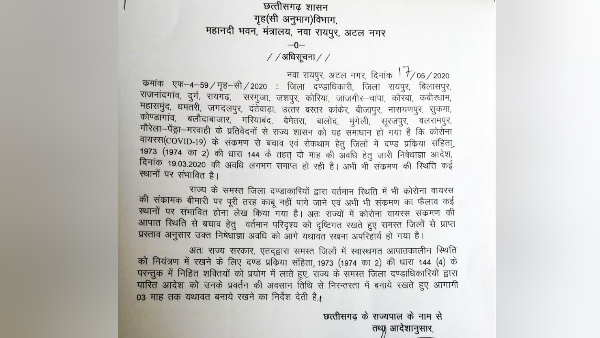 छत्तीसगढ़ शासन
गृह(सी अनुभाग)विभाग,
महानदी भवन, मंत्रालय, नवा रायपुर, अटल नगर
-0-
//अधिसूचना//
नवा रायपुर, अटल नगर, दिनांक 17/06/2020
क्रमांक एफ-4-59/गृह-सी/2020 : जिला दण्डाधिकारी, जिला रायपुर, बिलासपुर,
राजनांदगांव, दुर्ग, रायगढ़, सरगुजा, जशपुर, कोरिया, जांजगीर-चांपा, कोरबा, कबीरधाम,
महासमुंद, धमतरी, जगदलपुर, दंतेवाड़ा, उत्तर बस्तर कांकेर, बीजापुर, नारायणपुर, सुकमा,
कोण्डागांव, बलौदाबाजार, गरियाबंद, बेमेतरा, बालोद, मुंगेली, सूरजपुर, बलरामपुर,
गौरेला-पेंड्रा-मरवाही के प्रतिवेदनों से राज्य शासन को यह समाधान हो गया है कि कोरोना
वायरस(COVID-19) के संक्रमण से बचाव एवं रोकथाम हेतु जिलों में दण्ड प्रक्रिया संहिता,
1973 (1974 का 2) की धारा 144 के तहत दो माह की अवधि हेतु जारी निषेधाज्ञा आदेश,
दिनांक 19.03.2020 की अवधि लगभग समाप्त हो रही है। अभी भी संक्रमण की स्थिति कई
स्थानों पर संभावित है।
राज्य के समस्त जिला दण्डाधिकारियों द्वारा वर्तमान स्थिति में भी कोरोना वायरस
की संक्रामक बीमारी पर पूरी तरह काबू नहीं पाये जाने एवं अभी भी संक्रमण का फैलाव कई
स्थानों पर संभावित होना लेख किया गया है। अतः राज्यों में कोरोना वायरस संक्रमण की
आपात स्थिति से बचाव हेतु वर्तमान परिदृश्य को दृष्टिगत रखते हुए समस्त जिलों से प्राप्त
प्रस्ताव अनुसार उक्त निषेधाज्ञा अवधि को आगे यथावत रखना अपरिहार्य हो गया है।
अतः राज्य सरकार, एतद्द्वारा समस्त जिलों में स्वास्थगत आपातकालीन स्थिति
को नियंत्रण में रखने के लिए दण्ड प्रक्रिया संहिता,1973 (1974 का 2) की धारा 144 (4) के
परन्तुक में निहित शक्तियों को प्रयोग में लाते हुए, राज्य के समस्त जिला दण्डाधिकारियों द्वारा
पारित आदेश को उनके प्रवर्तन की अवसान तिथि से निरन्तरता में बनाये रखते हुए आगामी
03 माह तक यथावत बनाये रखने का निर्देश देती है।
छत्तीसगढ़ के राज्यपाल के नाम से
तथा आदेशानुसार,